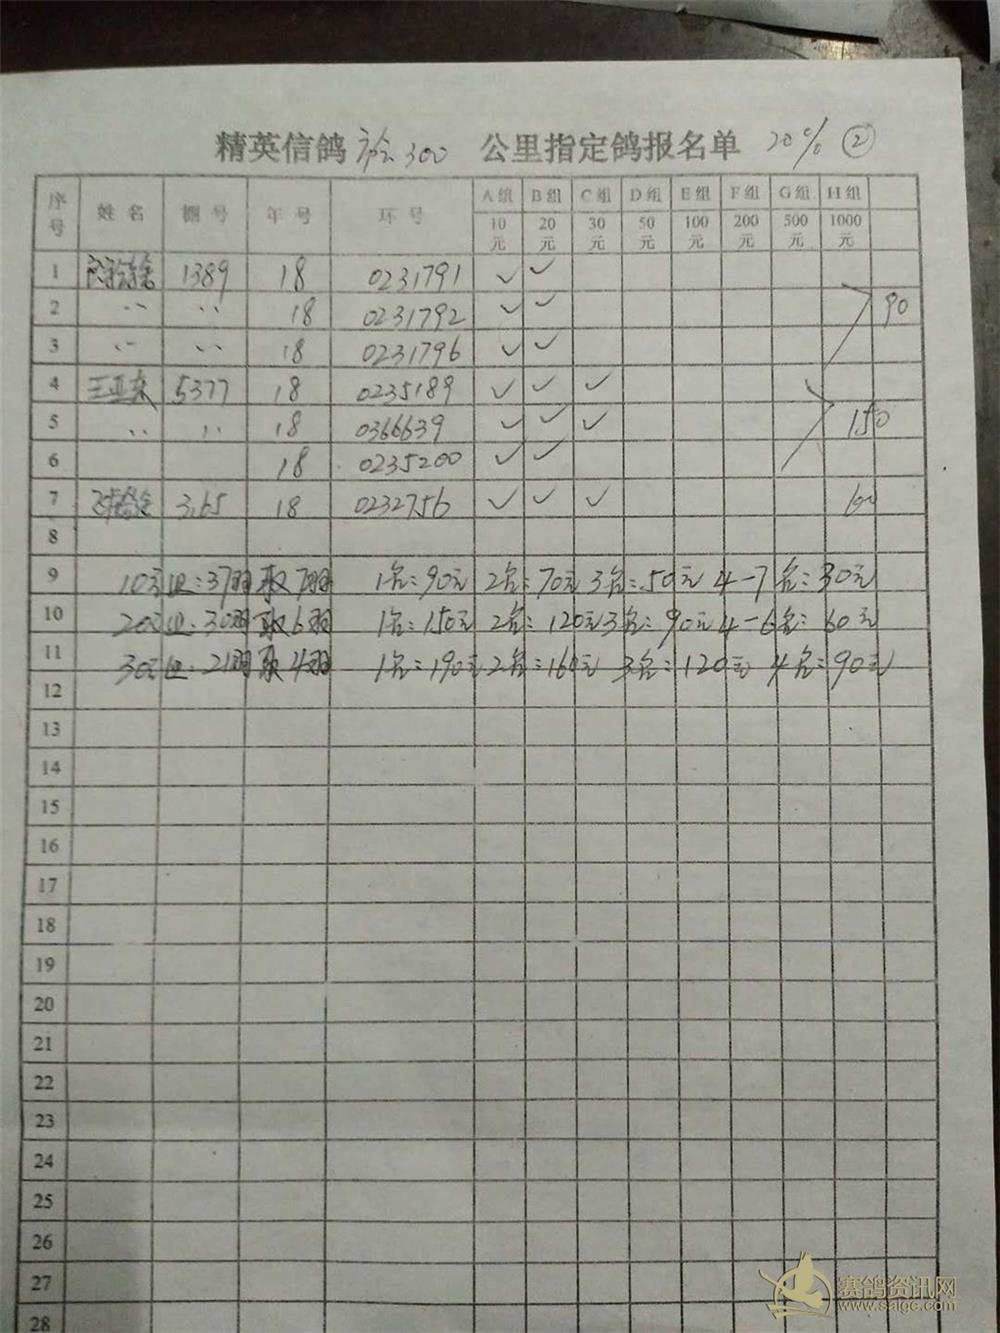 精英信鸽 300 公里指定鸽报名单 20% ②
序号 姓名 棚号 年号 环号 A组 10元 B组 20元 C组 30元 D组 50元 E组 100元 F组 200元 G组 500元 H组 1000元
1 1389 18 0231791 ✓ ✓
2 〃 〃 18 0231792 ✓ ✓ 90
3 〃 〃 18 0231796 ✓ ✓
4 王亚东 5377 18 0235189 ✓ ✓ ✓
5 〃 〃 18 0366639 ✓ ✓ ✓ 150
6 18 0235200 ✓ ✓
7 3165 18 0232756 ✓ ✓ ✓
8
9 10元组:37羽取7羽 1名:90元 2名:70元 3名:50元 4-7名:30元
10 20元组:30羽取6羽 1名:150元 2名:120元 3名:90元 4-6名:60元
11 30元组:21羽取4羽 1名:190元 2名:160元 3名:120元 4名:90元
12
13
14
15
16
17
18
19
20
21
22
23
24
25
26
27
28
赛鸽资讯网
www.saigc.com